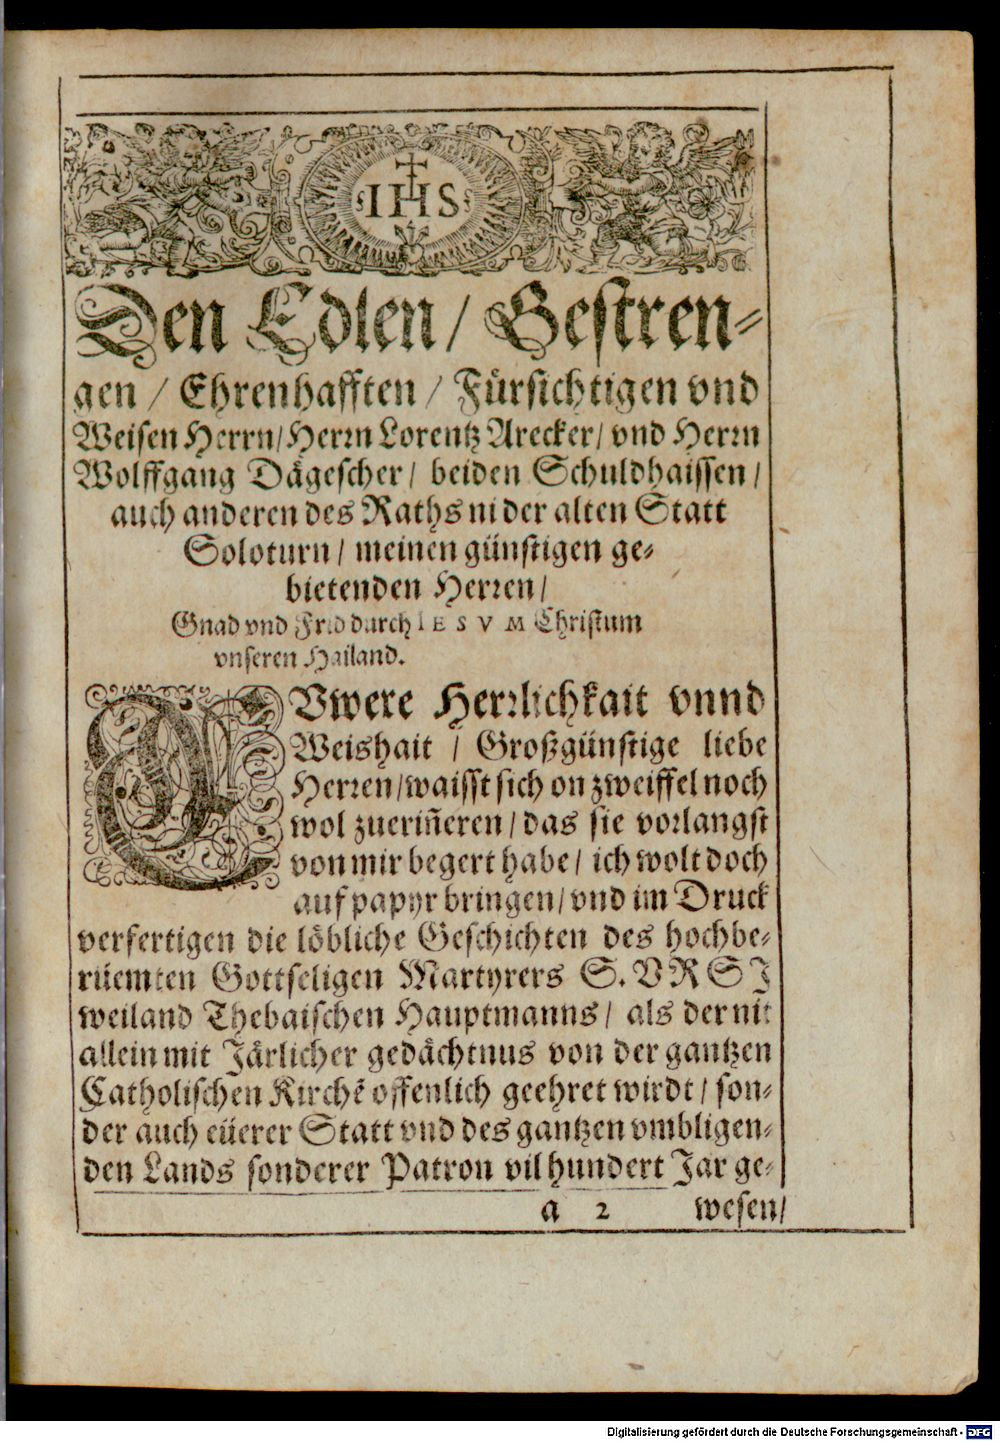 IHS
Den Edlen / Gestren-
gen / Ehrenhafften / Fürsichtigen vnd
Weisen Herrn / Herrn Lorentz Arecker / vnd Herrn
Wolffgang Dägescher / beiden Schuldhaissen /
auch anderen des Raths in der alten Statt
Soloturn / meinen günstigen ge-
bietenden Herren /
Gnad vnd Frid durch IESVM Christum
vnseren Hailand.
EVwere Herrlichkait vnnd
Weishait / Großgünstige liebe
Herren / waisst sich on zweiffel noch
wol zueriñeren / das sie vorlangst
von mir begert habe / ich wolt doch
auf papyr bringen / vnd im Druck
verfertigen die löbliche Geschichten des hochbe-
rüemten Gottseligen Martyrers S. VRSI
weiland Thebaischen Hauptmanns / als der nit
allein mit Järlicher gedächtnus von der gantzen
Catholischen Kirchẽ offenlich geehret wirdt / son-
der auch eüerer Statt vnd des gantzen vmbligen-
den Lands sonderer Patron vil hundert Jar ge-
a 2 wesen /
Digitalisierung gefördert durch die Deutsche Forschungsgemeinschaft - DFG